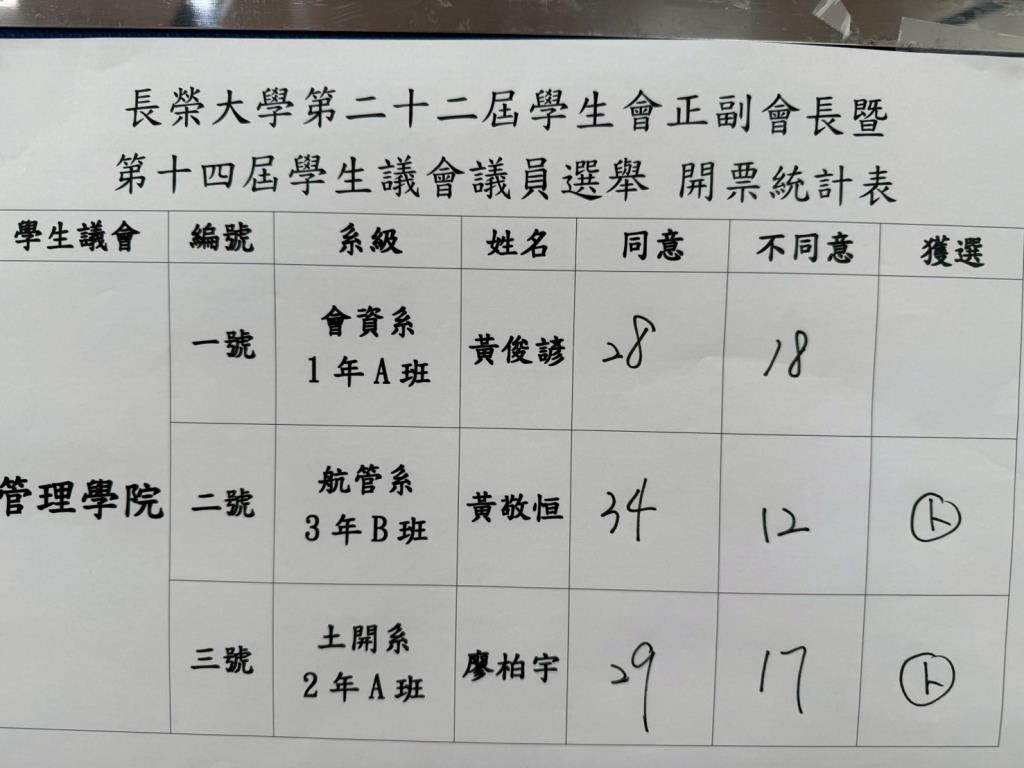 長榮大學第二十二屆學生會正副會長暨
第十四屆學生議會議員選舉 開票統計表
學生議會 編號 系級 姓名 同意 不同意 獲選
管理學院
一號 會資系 1年A班 黃俊諺 28 18
二號 航管系 3年B班 黃敬恒 34 12 ㊤
三號 土開系 2年A班 廖柏宇 29 17 ㊤